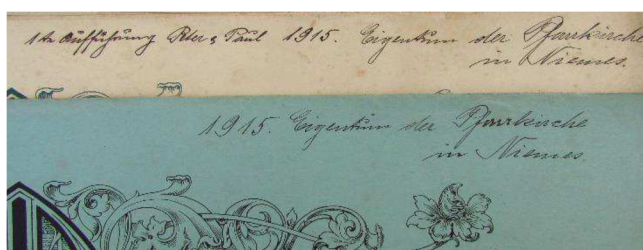 1te Aufführung Peter & Paul 1915. Eigentum der Pfarrkirche
in Niemes.
1915. Eigentum der Pfarrkirche
in Niemes.